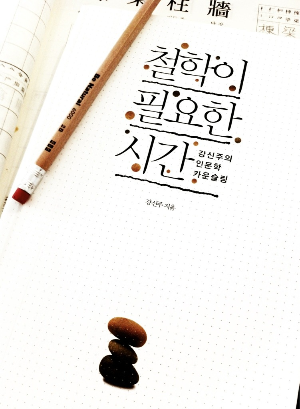 柱牆
철학이
필요한
시간
강신주의
인문학
카운슬링
강신주 지음